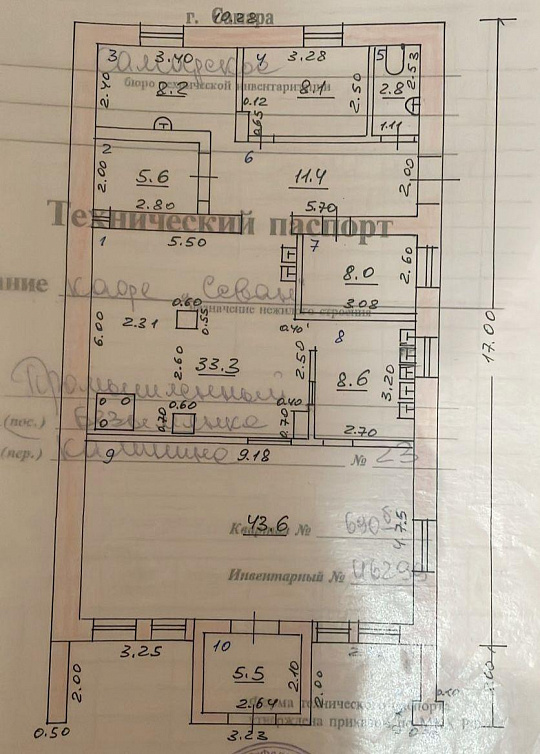 г. Самара
10.23
3 3.40 4 3.28 5
Самарское
8.2 8.1 2.8
2.40 2.50 2.53
бюро технической инвентаризации
0.12
0.65 1.11
2 6
5.6 11.4
2.00 2.00
2.80 5.70
Технический паспорт
1 5.50 7
8.0 2.60
ание кафе "Севан"
назначение нежилого строения
3.08
0.60
6.00 2.31 0.55
0.40 8
17.00
2.60 33.3 2.50 8.6 3.20
Промышленный
0.60 0.40
(пос.) Безымянка
0.70 0.70 2.70
(пер.) Калинина № 23
9 9.18
43.6
Квартал № 690
4.75
Инвентарный №
3.25 10
5.5 2.10
2.00 2.00
2.64
Форма технического паспорта
утверждена приказом по МКХ РСФ
0.50 3.23